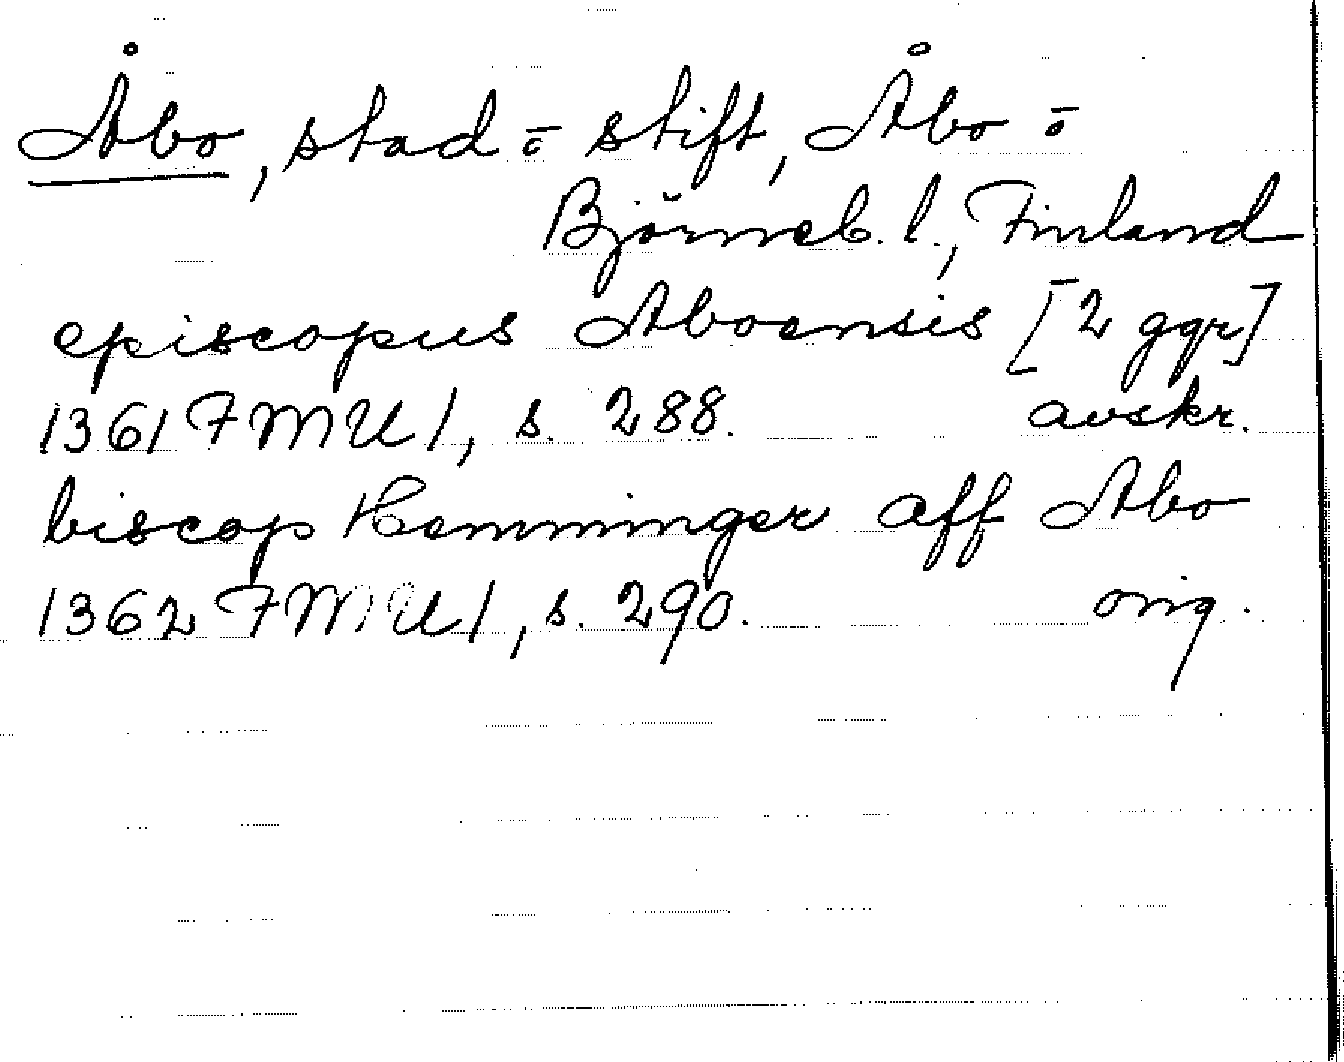 Åbo, stad o. stift, Åbo o.
Björneb. l., Finland
episcopus Aboensis [2 ggr]
1361 FMU 1, s. 288. avskr.
biscop Hemminger aff Abo
1362 FMU 1, s. 290. orig.